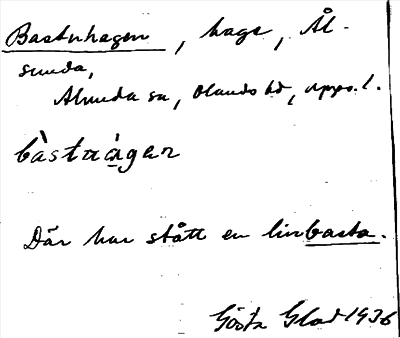 Bastuhagen, hage, Ål-
sunda,
Almunda sn, Olands hd, Upps. l.
bàstuágan
Där har stått en linbasta.
Gösta Glad 1936